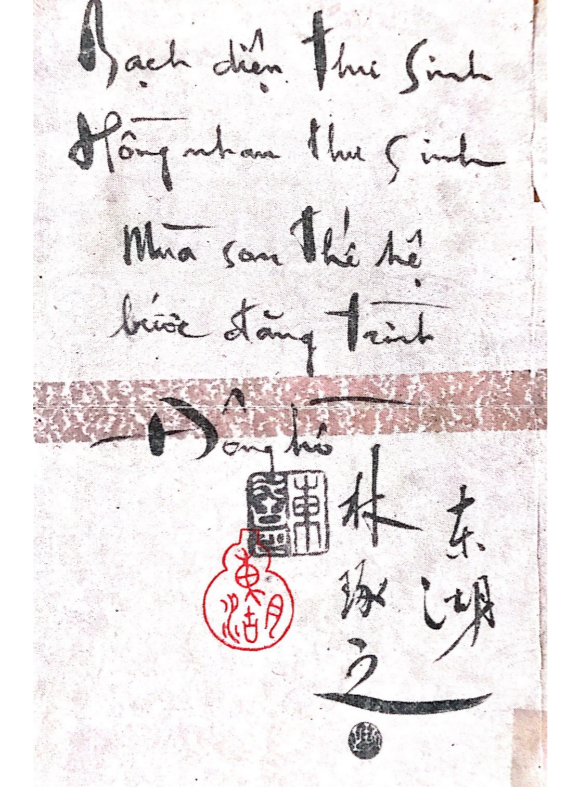 Bạch diện thư sinh
Hồng nhan thư sinh
Mùa son thế hệ
bước đăng trình
Đông hồ
东湖
林琢之
東湖